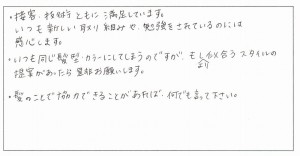 ・接客、技術ともに満足しています。
いつも新しい取り組みや、勉強をされているのには
感心します。
・いつも同じ髪型・カラーにしてしまうのですが、もしより似合うスタイルの
提案があったら是非お願いします。
・髪のことで協力できることがあれば、何でも言って下さい。